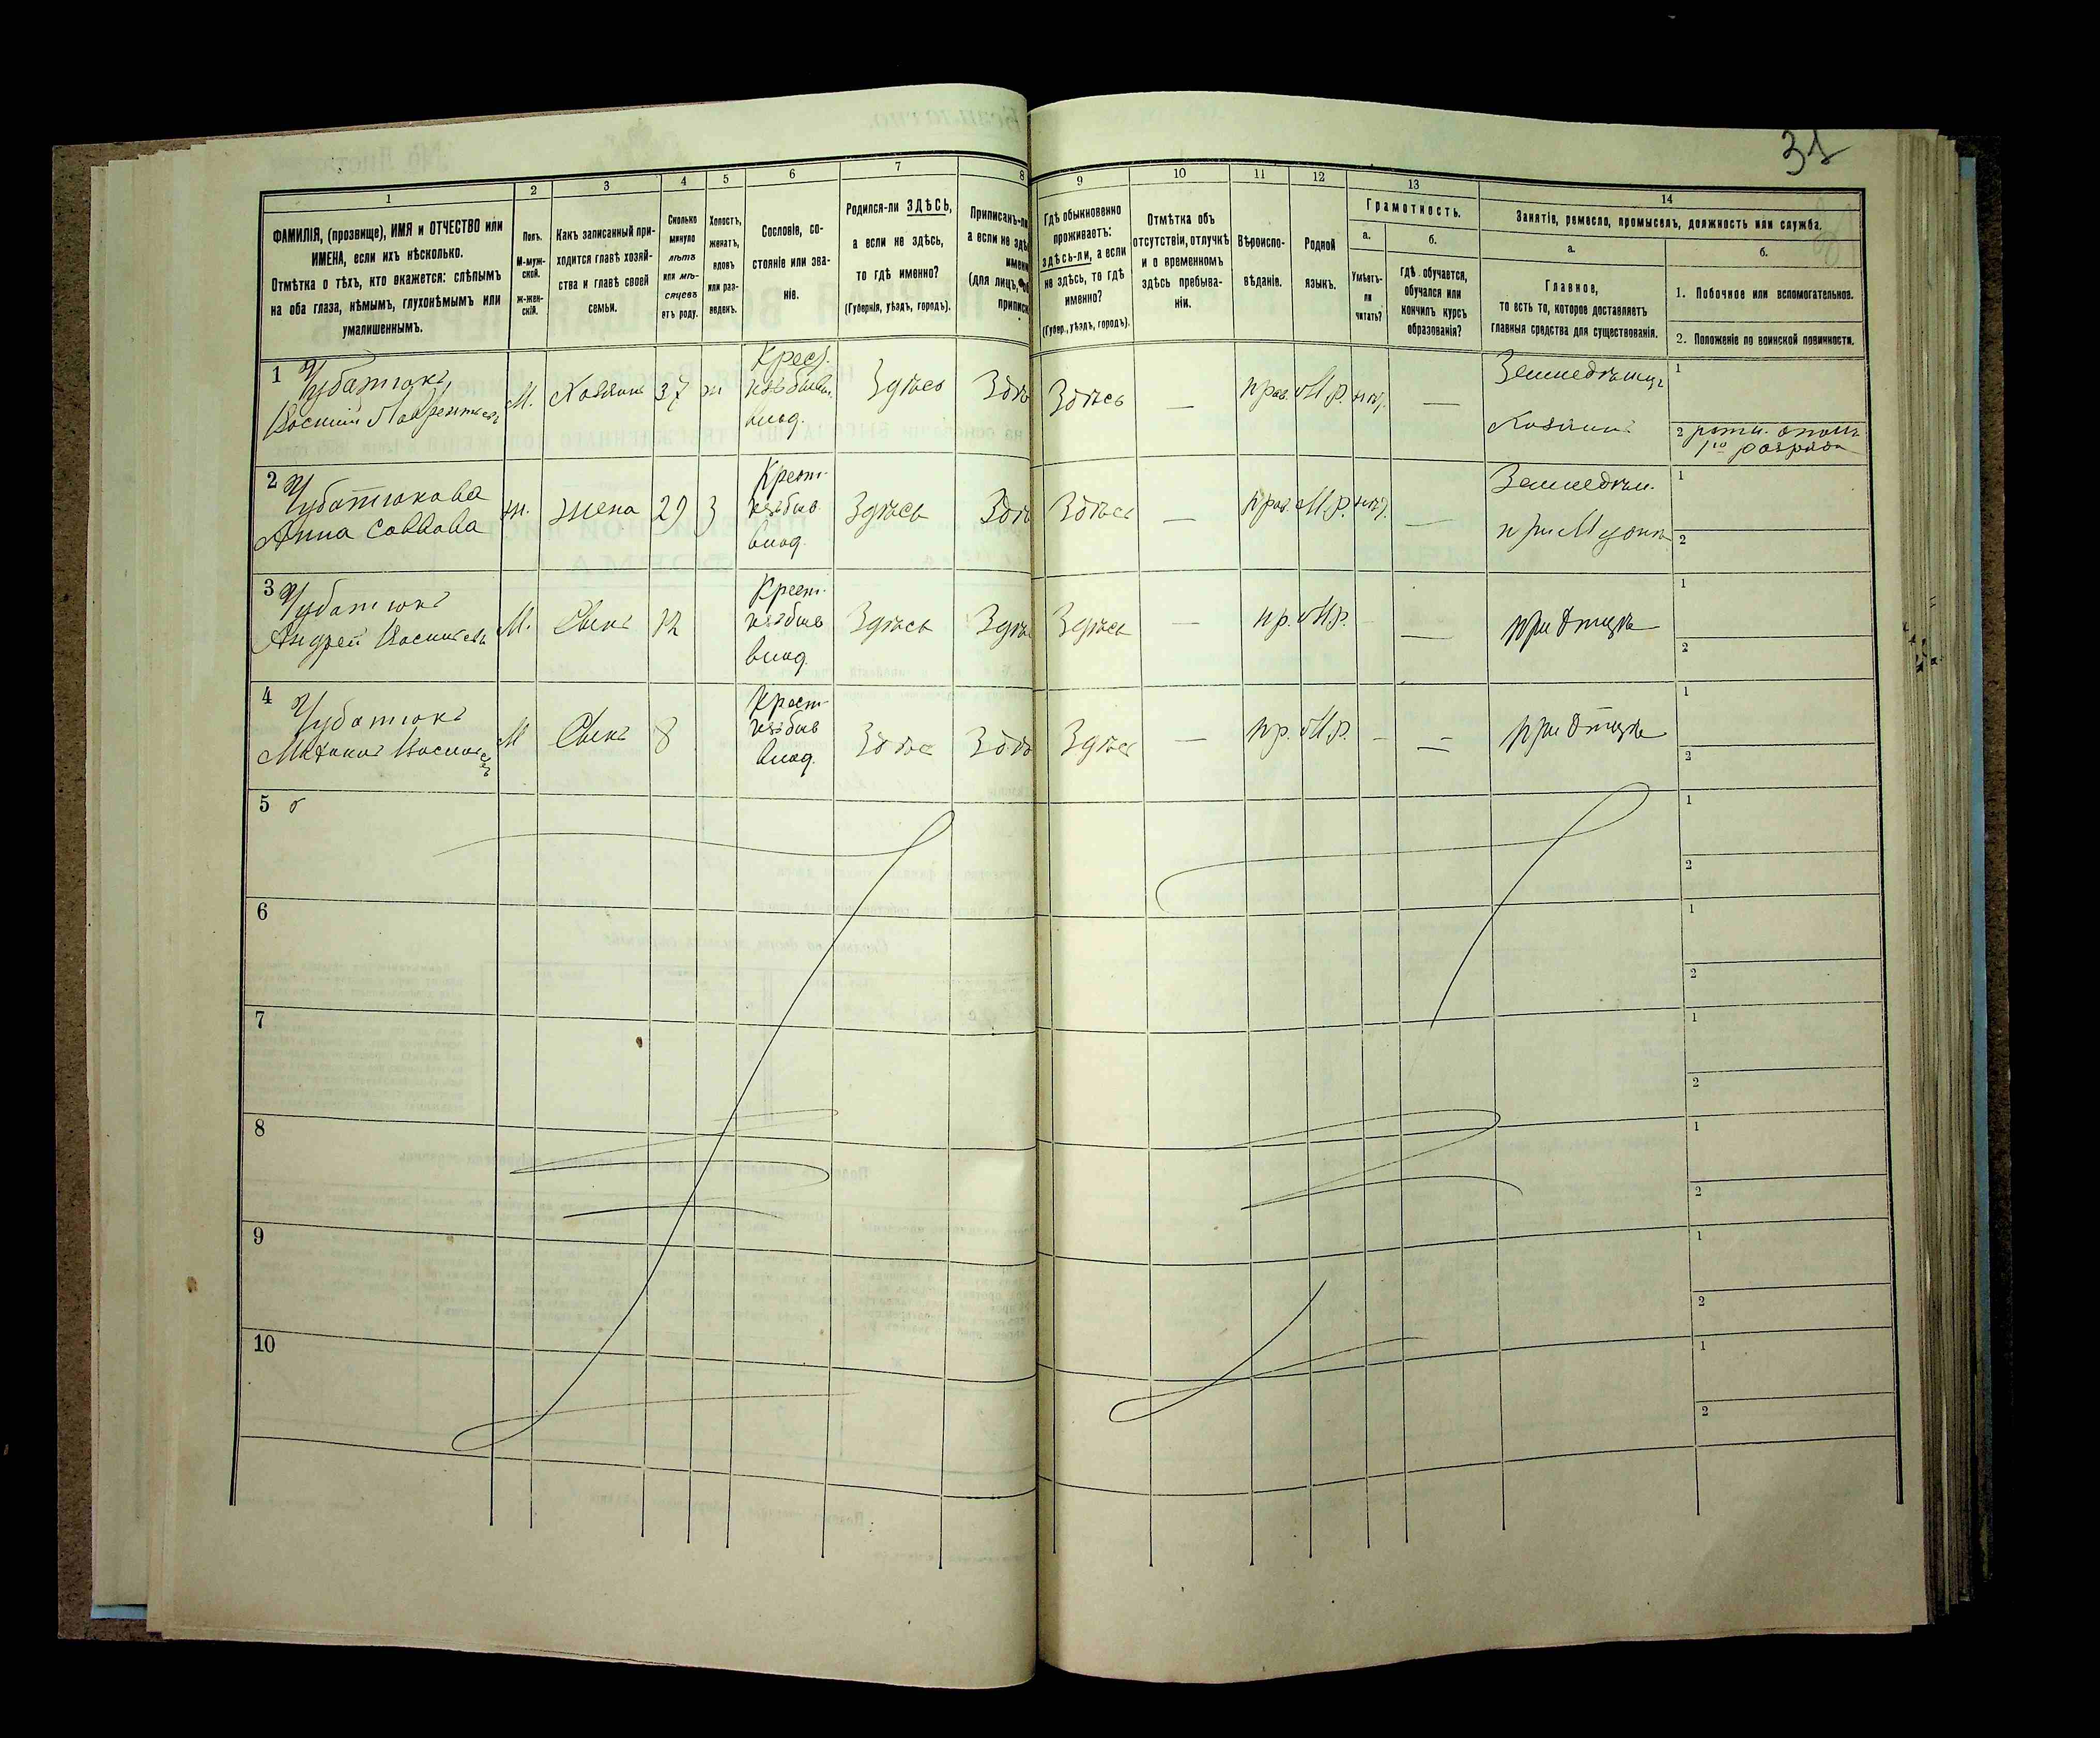 31
1
2
3
4
5
6
7
8
9
10
11
12
13
14
ФАМИЛІЯ, (прозвище), ИМЯ и ОТЧЕСТВО или
ИМЕНА, если ихъ нѣсколько.
Отмѣтка о тѣхъ, кто окажется: слѣпымъ
на оба глаза, нѣмымъ, глухонѣмымъ или
умалишеннымъ.
Полъ.
М-муж-
ской.
Ж-жен-
скій.
Какъ записанный при-
ходится главѣ хозяй-
ства и главѣ своей
семьи.
Сколько
минуло
лѣтъ
или мѣ-
сяцевъ
отъ роду.
Холостъ,
женатъ,
вдовъ
или раз-
веденъ.
Сословіе, со-
стояніе или зва-
ніе.
Родился-ли ЗДѢСЬ,
а если не здѣсь,
то гдѣ именно?
(Губернія, уѣздъ, городъ).
Приписанъ-ли
а если не здѣ
именн
(для лицъ, об
приписк
Гдѣ обыкновенно
проживаетъ:
здѣсь-ли, а если
не здѣсь, то гдѣ
именно?
(Губер., уѣздъ, городъ).
Отмѣтка объ
отсутствіи, отлучкѣ
и о временномъ
здѣсь пребыва-
ніи.
Вѣроиспо-
вѣданіе.
Родной
языкъ.
Грамотность.
а.
Умѣетъ-
ли
читать?
б.
гдѣ обучается,
обучался или
кончилъ курсъ
образованія?
Занятіе, ремесло, промыселъ, должность или служба.
а.
Главное,
то есть то, которое доставляетъ
главныя средства для существованія.
б.
1. Побочное или вспомогательное.
2. Положеніе по воинской повинности.
1 Чубатюкъ
Василій Лаврентьевъ
М. Хозяинъ 37 ж
Крест.
изъ бывш.
влад.
Здѣсь Здѣ Здѣсь — прав. М.р. нѣт. —
Земледѣлецъ
Хозяинъ
1
2 ратн. ополч.
1го разряда
2 Чубатюкова
Анна Саввова
ж. жена 29 з
Крест.
изъ быв.
влад.
Здѣсь Здѣ Здѣсь — прав. М.р. нѣт. —
Земледѣл.
при Мужѣ
1
2
3 Чубатюкъ
Андрей Васильевъ
М. Сынъ 12
Крест.
изъ быв
влад.
Здѣсь Здѣ Здѣсь — пр. М.р. — —
при Отцѣ
1
2
4 Чубатюкъ
Михаилъ Васильевъ
М Сынъ 8
Крест.
изъ быв
влад.
Здѣсь Здѣ Здѣсь — пр. М.р. — —
при Отцѣ
1
2
5
1
2
6
1
2
7
1
2
8
1
2
9
1
2
10
1
2